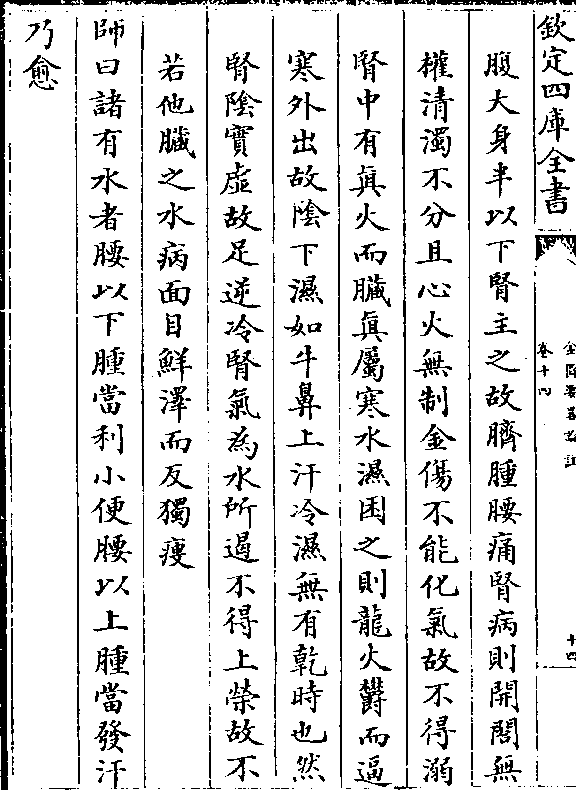 欽定四庫全書
卷十四
十四
腹大身半以下腎主之故臍腫腰痛腎病則開闔無
權清濁不分且心火無制金傷不能化氣故不得溺
腎中有真火而臟真屬寒水濕困之則龍火欝而逼
寒外出故陰下濕如牛鼻上汗冷濕無有乾時也然
腎陰實虛故足逆冷腎氣為水所遏不得上榮故不
若他臟之水病面目鮮澤而反獨瘦
師曰諸有水者腰以下腫當利小便腰以上腫當發汗
乃愈